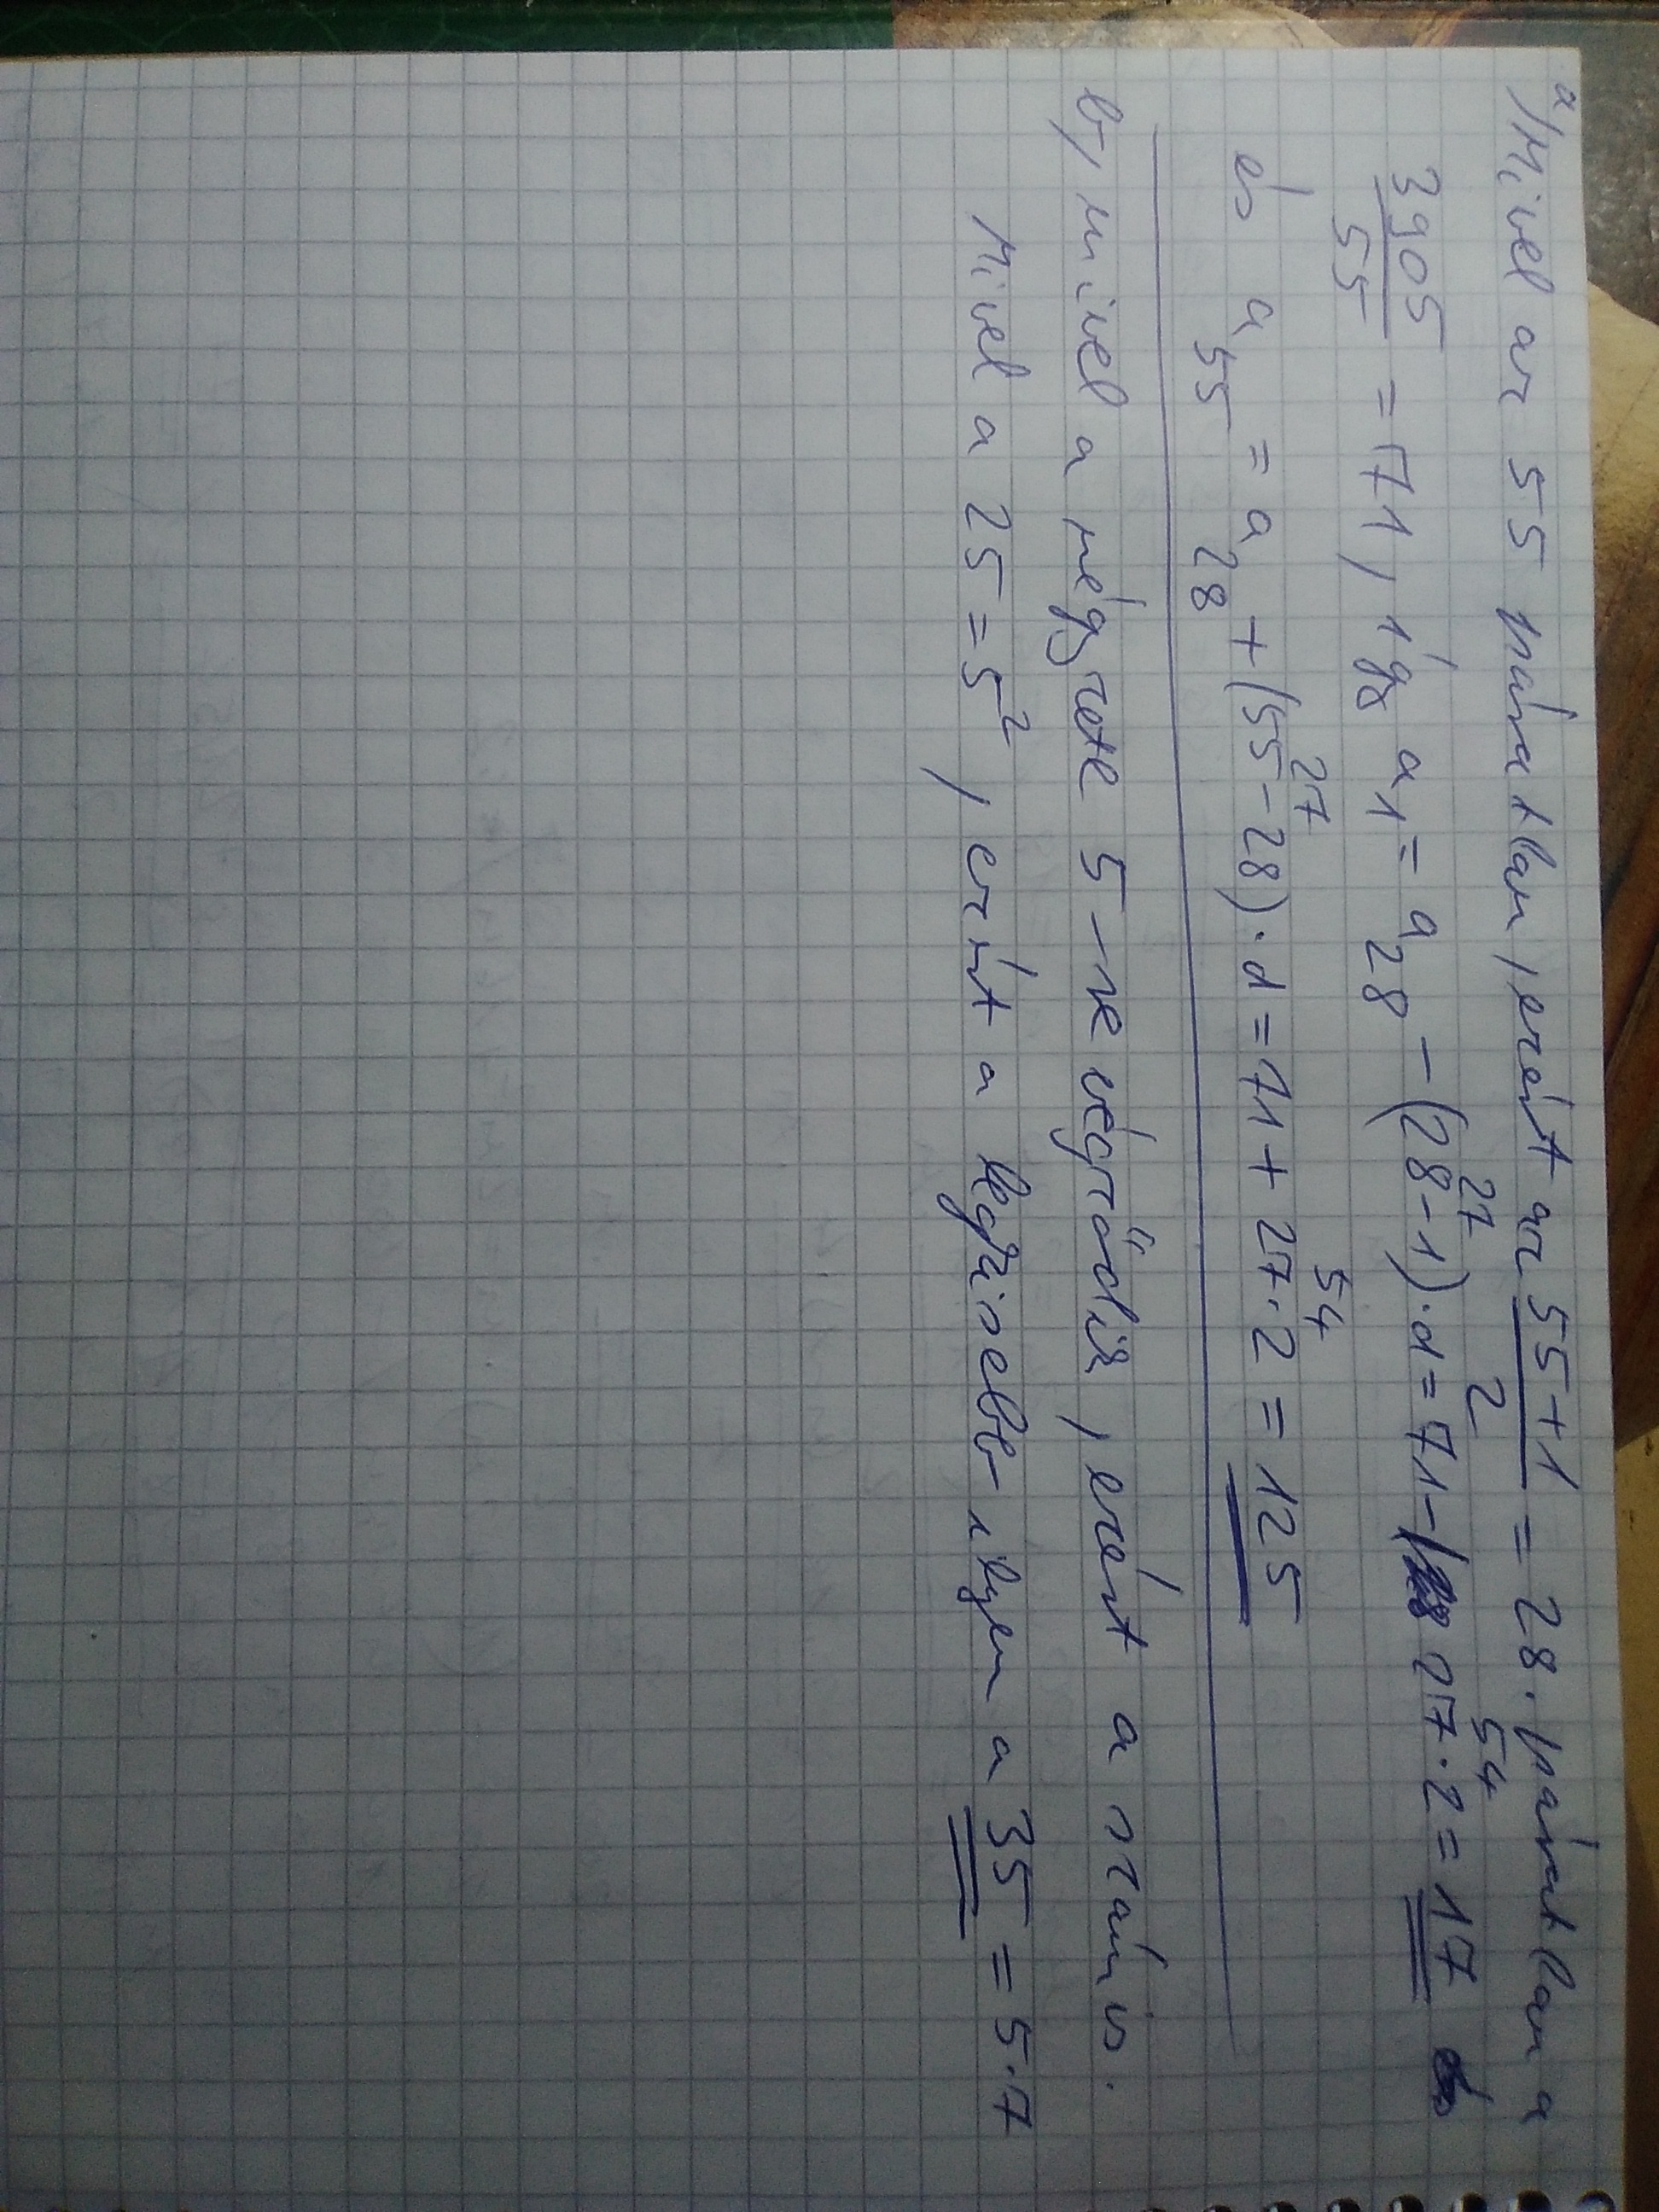 a/Mivel az 55 páratlan, ezért az 55+1/2 = 28. páratlan a
3905/55 = 71, így a₁ = a₂₈ - (28-1)·d = 71 - 27·2 = 17 és
27
54
és a₅₅ = a₂₈ + (55-28)·d = 71 + 27·2 = 125
27
54
b, mivel a négyzete 5-re végződik, ezért a szám is.
Mivel a 25 = 5², ezért a legkisebb ilyen a 35 = 5·7